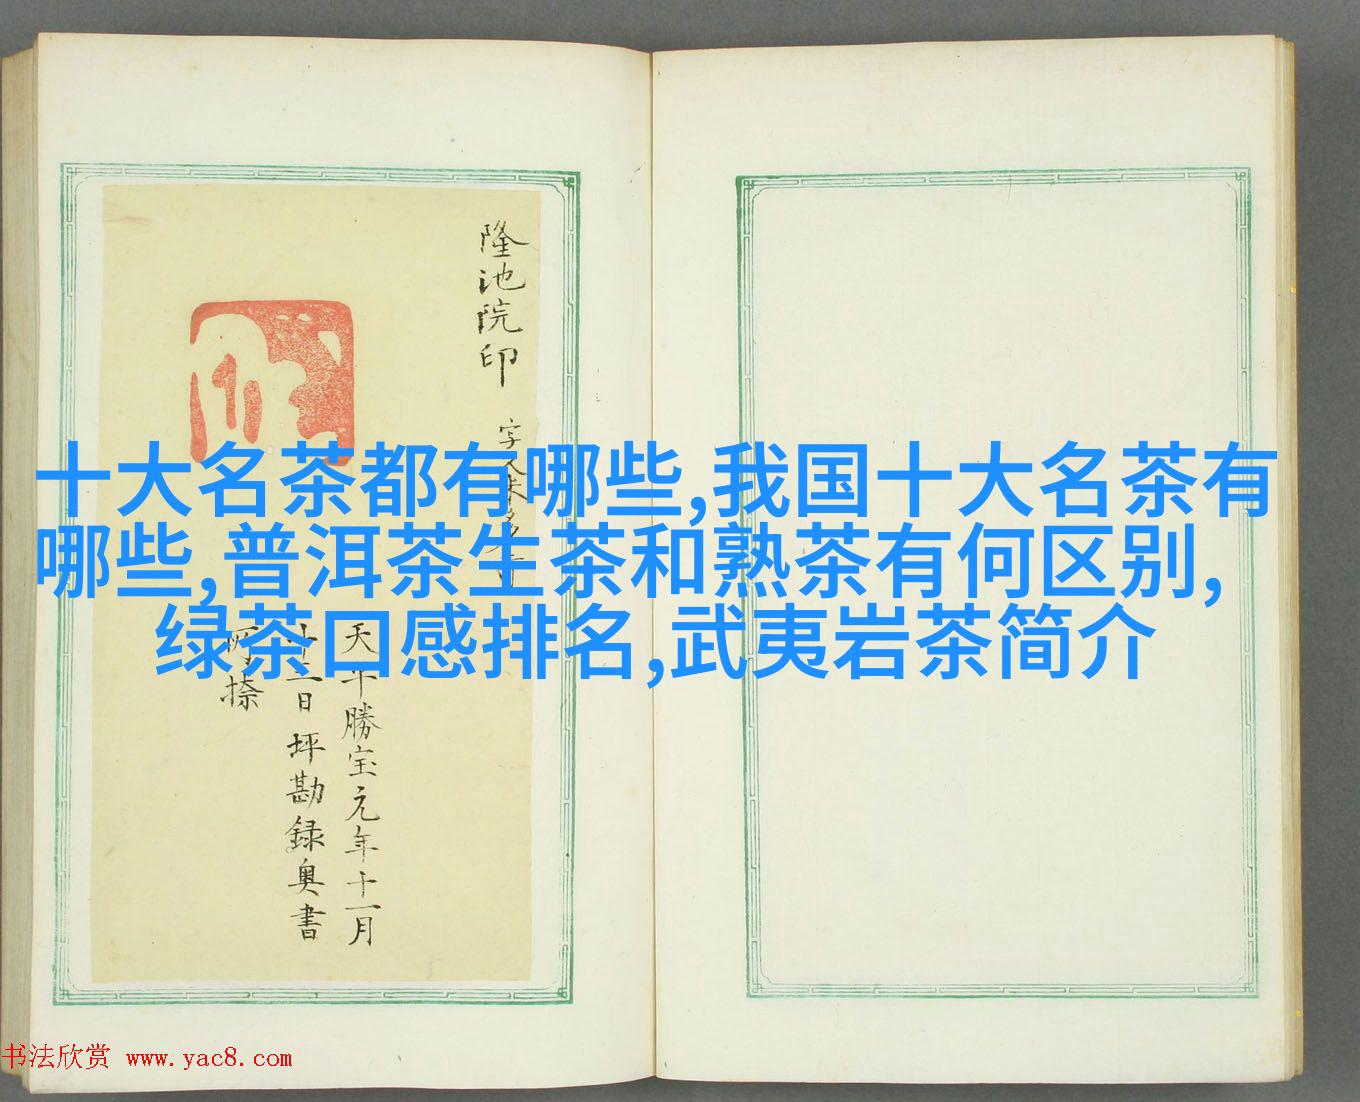 十大名茶都有哪些,我国十大名茶有
哪些,普洱茶生茶和熟茶有何区别,
绿茶口感排名,武夷岩茶简介
隆池院印
天平勝宝元年十一月
廿三日 坪勘録奥書
书法欣赏 www.yac8.com